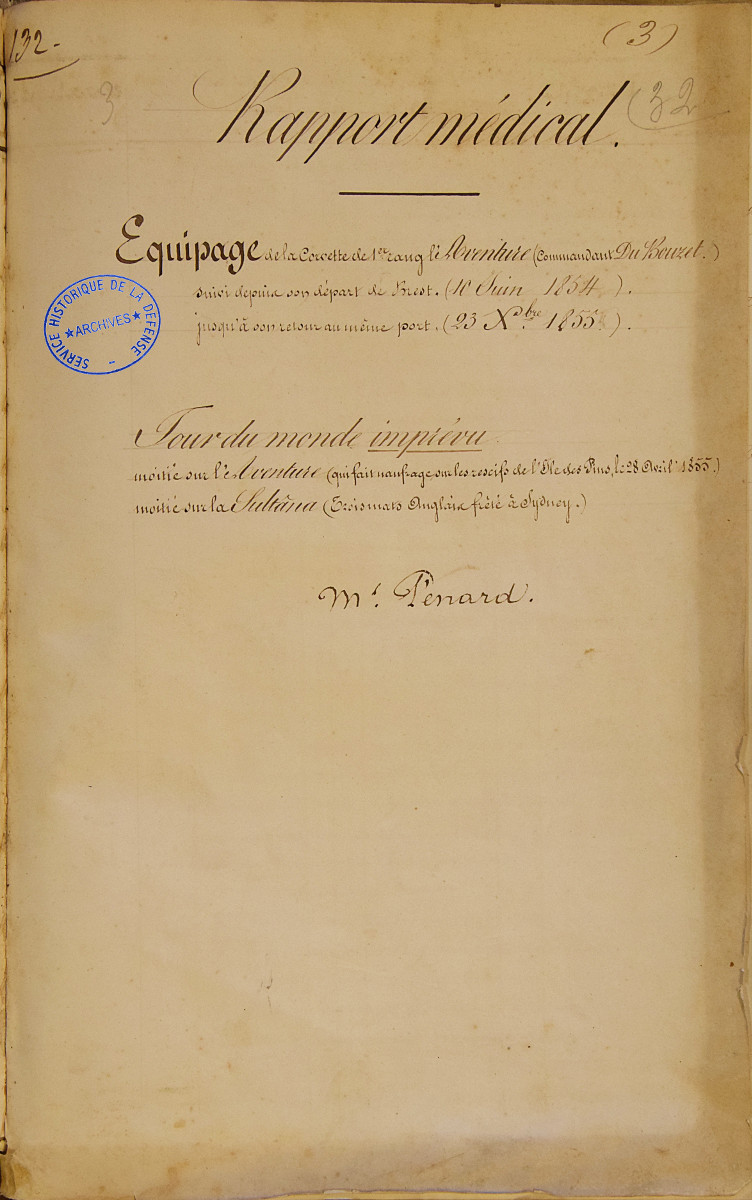 132 -
(3)
3
32
Rapport médical.
Equipage de la Corvette de 1er rang l'Aventure (Commandant Du Bouzet.)
suivi depuis son départ de Brest. (10 Juin 1854).
jusqu'à son retour au même port. (23 Xbre 1855).
SERVICE HISTORIQUE DE LA DÉFENSE
★ ARCHIVES ★
Tour du monde imprévu
moitié sur l'Aventure (qui fait naufrage sur les rescifs de l'Ile des Pins, le 28 Avril 1855.)
moitié sur la Sultana (Trois mats Anglais frêté à Sydney.)
Mr. Pénard.